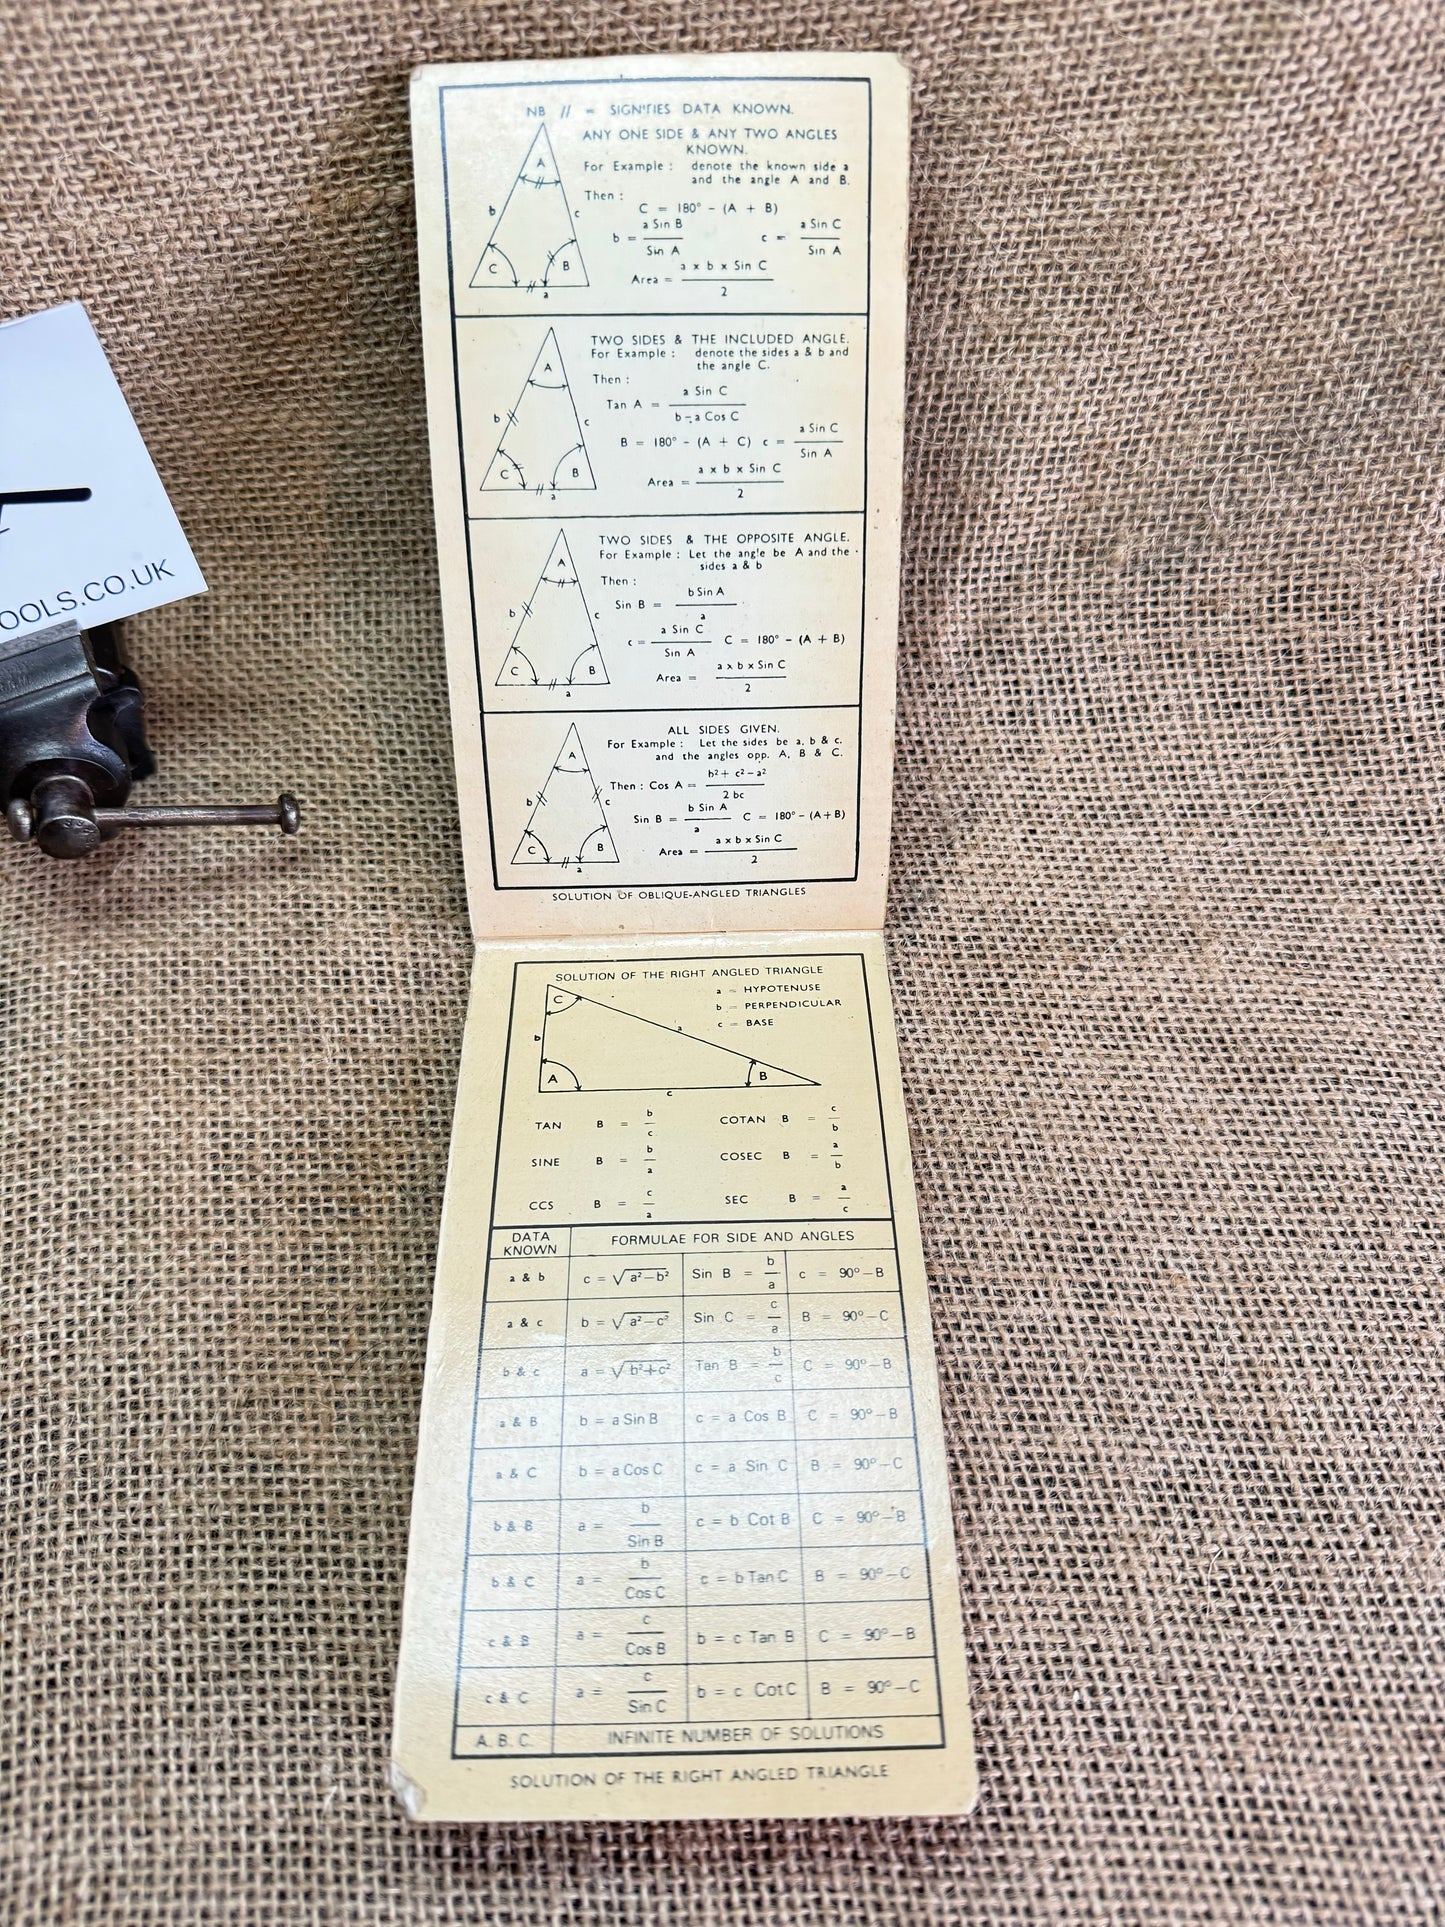 NB // = SIGNIFIES DATA KNOWN.
ANY ONE SIDE & ANY TWO ANGLES
KNOWN.
For Example : denote the known side a
and the angle A and B.
Then :
C = 180° - (A + B)
b = a Sin B / Sin A c = a Sin C / Sin A
Area = a x b x Sin C / 2
A
b c
C B
a
TWO SIDES & THE INCLUDED ANGLE.
For Example : denote the sides a & b and
the angle C.
Then :
Tan A = a Sin C / b - a Cos C
B = 180° - (A + C) c = a Sin C / Sin A
Area = a x b x Sin C / 2
A
b c
C B
a
TWO SIDES & THE OPPOSITE ANGLE.
For Example : Let the angle be A and the
sides a & b
Then :
Sin B = b Sin A / a
c = a Sin C / Sin A C = 180° - (A + B)
Area = a x b x Sin C / 2
A
b c
C B
a
ALL SIDES GIVEN.
For Example : Let the sides be a, b & c.
and the angles opp. A, B & C.
Then : Cos A = b² + c² - a² / 2 bc
Sin B = b Sin A / a C = 180° - (A + B)
Area = a x b x Sin C / 2
A
b c
C B
a
SOLUTION OF OBLIQUE-ANGLED TRIANGLES
OOLS.CO.UK
SOLUTION OF THE RIGHT ANGLED TRIANGLE
a = HYPOTENUSE
b = PERPENDICULAR
c = BASE
C
b a
A B
c
TAN B = b / c COTAN B = c / b
SINE B = b / a COSEC B = a / b
CCS B = c / a SEC B = a / c
DATA KNOWN FORMULAE FOR SIDE AND ANGLES
a & b c = √a²-b² Sin B = b / a c = 90°-B
a & c b = √a²-c² Sin C = c / a B = 90°-C
b & c a = √b²+c² Tan B = b / c C = 90°-B
a & B b = a Sin B c = a Cos B C = 90°-B
a & C b = a Cos C c = a Sin C B = 90°-C
b & B a = b / Sin B c = b Cot B C = 90°-B
b & C a = b / Cos C c = b Tan C B = 90°-C
c & B a = c / Cos B b = c Tan B C = 90°-B
c & C a = c / Sin C b = c Cot C B = 90°-C
A. B. C. INFINITE NUMBER OF SOLUTIONS
SOLUTION OF THE RIGHT ANGLED TRIANGLE